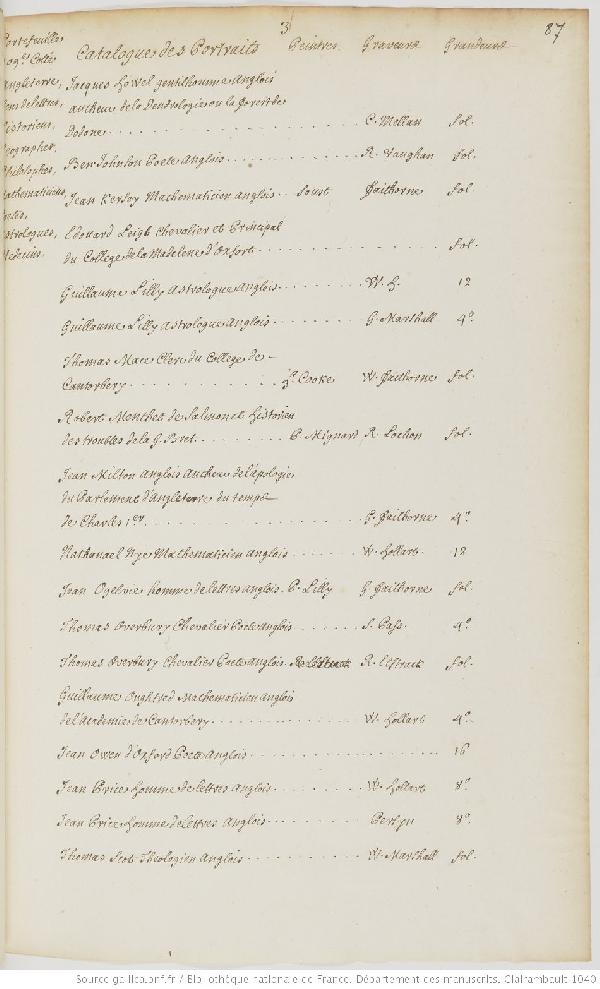 3
87
Portefeuille
Angleterre,
gens de lettres,
historiens,
Geographes,
Philosophes,
Mathematiciens,
Poetes,
Astrologues,
Medecins.
Catalogue des Portraits Peintres. Graveurs Grandeurs
Jacques Howel gentilhomme Anglois
autheur de la Dendrologie ou la forest de
Dodone . . . C. Mellan fol.
Ben Johnson Poete Anglois . . . R. Vaughan fol.
Jean Kersey Mathematicien anglois . . Soust Faithorne fol.
Edouard Leigh Chevalier et Principal
du College de la Madelene d'Oxfort . . . fol.
Guillaume Lilly Astrologue Anglois . . . W. H. 12
Guillaume Lilly Astrologue Anglois . . . G. Marshall 4º.
Thomas Mace Clerc du College de
Cantorbery . . . Cooke W. Faithorne fol.
Robert Menthet de Salmonet historien
des troubles de la G. Bret. . . . P. Mignard R. Lochon fol.
Jean Milton Anglois Autheur de l'apologie
du Parlement d'Angleterre du temps
de Charles 1er. . . . G. Faithorne 4º.
Nathanael Nye Mathematicien anglois . . . W. Hollart 12
Jean Ogelvie homme de lettres anglois. P. Lilly G. Faithorne fol.
Thomas Overbury Chevalier Poete Anglois . . . S. Pass. 4º.
Thomas Overbury Chevalier Poete Anglois R. Elstrack R. Elstrack fol.
Guillaume Oughtred Mathematicien Anglois
de l'Academie de Cantorbery . . . W. Hollart 4º.
Jean Owen d'Oxford Poete Anglois . . . 16
Jean Price homme de lettres Anglois . . . W. Hollart 8º.
Jean Price homme de lettres Anglois . . . 8º.
Thomas Scot Theologien Anglois . . . W. Marshall fol.
Source gallica.bnf.fr / Bibliothèque nationale de France. Département des manuscrits. Clairambault 1040